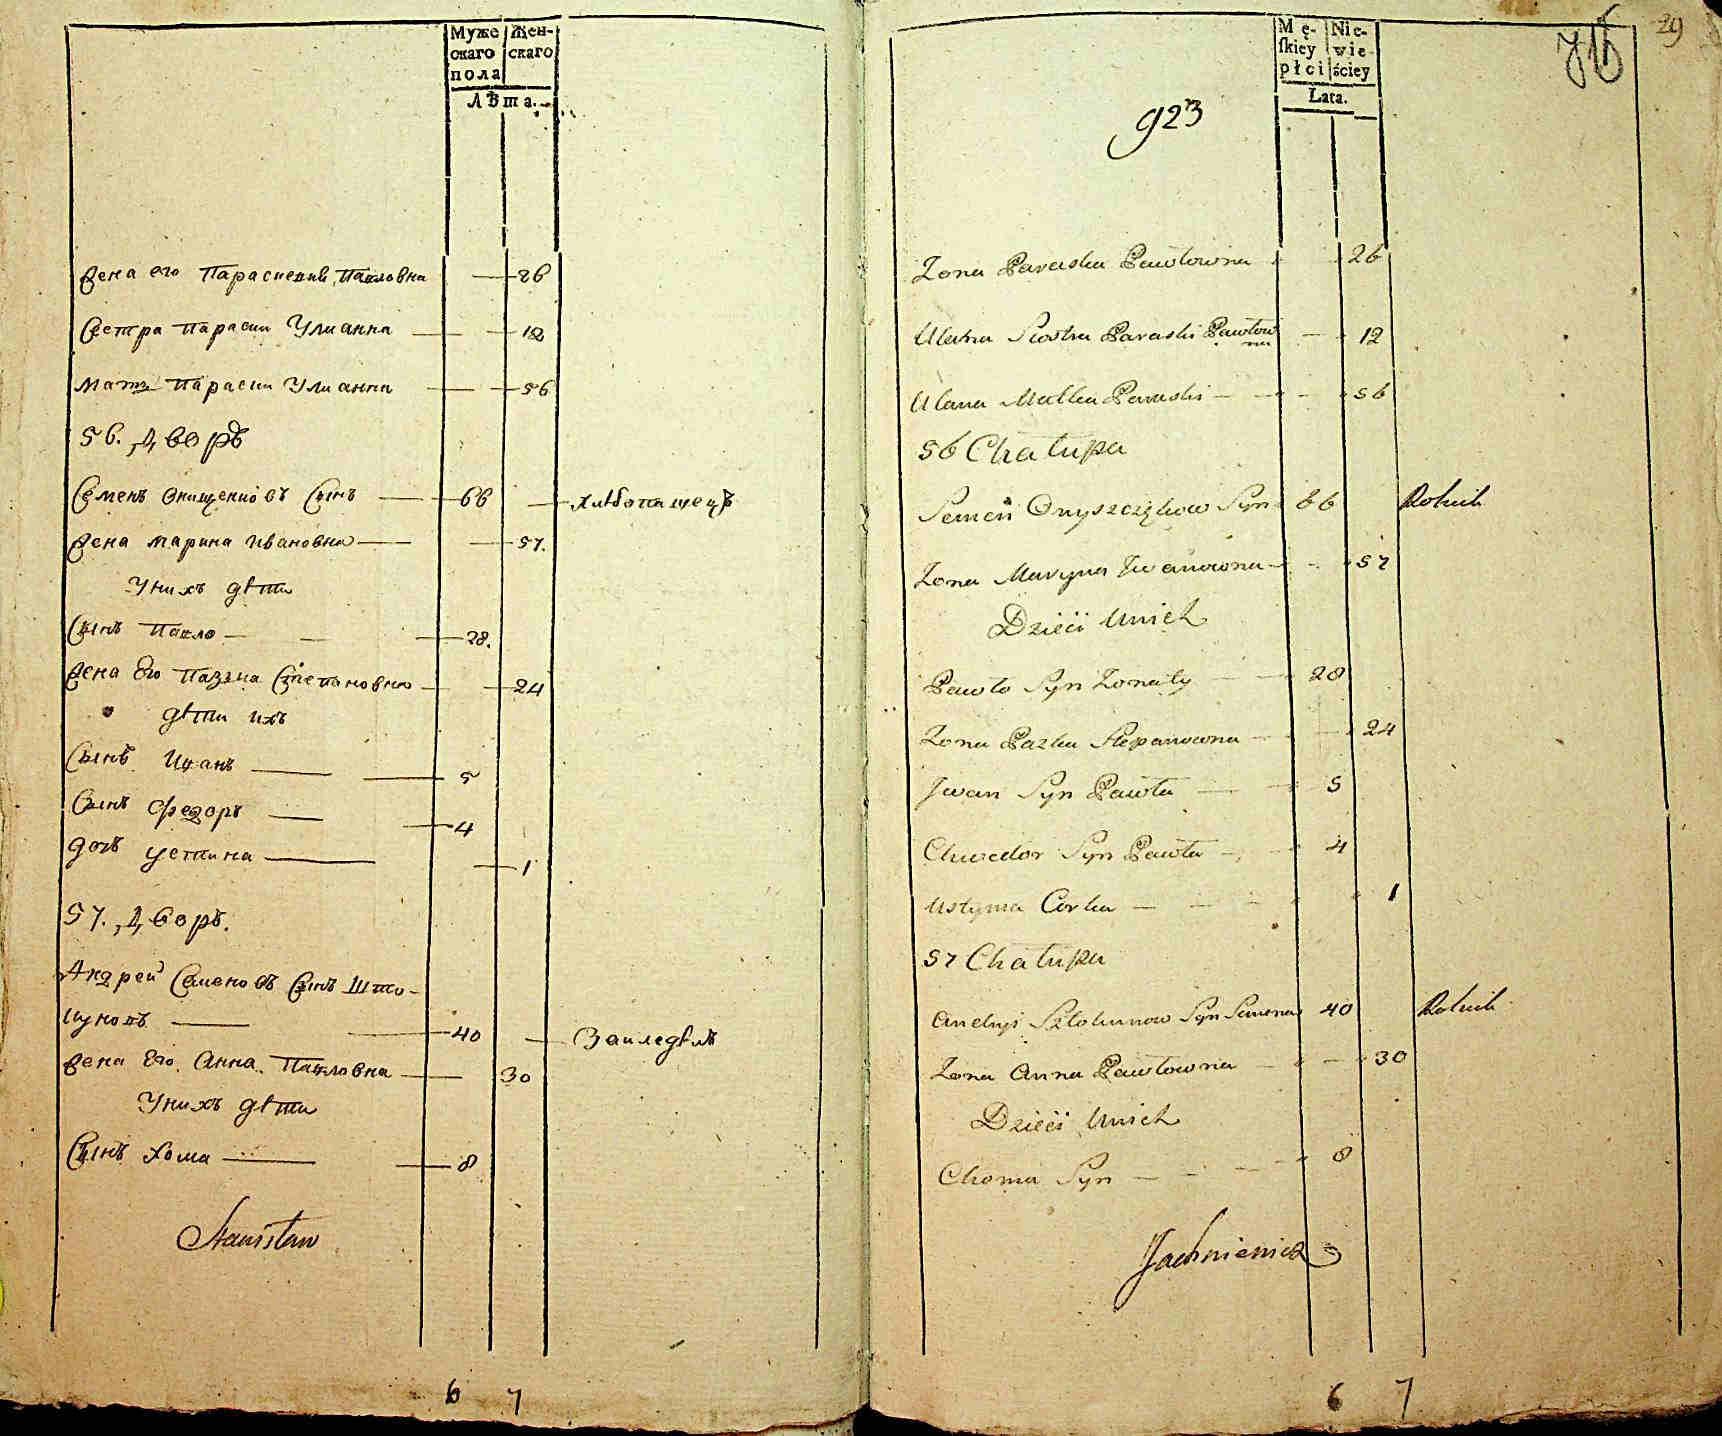 Муже Жен-
скаго скаго
пола
Лѣта.
Жена его Параскевия Павловна 26
Сестра Параски Улианна 12
Мать Параски Улианна 56
56. Дворъ
Семенъ Онищенковъ Сынъ 66 Хлѣбопашецъ
Жена Марина Ивановна 57.
У нихъ дѣти
Сынъ Павло 28.
Жена Его Пазька Степановна 24
дѣти ихъ
Сынъ Иванъ 5
Сынъ Федоръ 4
дочь Устина 1
57. Дворъ.
Андрей Семеновъ Сынъ Што-
куновъ 40
Жена Его Анна Павловна 30
У нихъ дѣти
Сынъ Хома 8
Stanisław
6 7
29
Mę- Nie-
skiey wie
płci ściey
Lata.
923
Zona Paraska Pawłowna 26
Ulana Siostra Paraski Pawłow
na 12
Ulana Matka Paraski 56
56 Chałupa
Semen Onyszczękow Syn 66 Rolnik
Zona Maryna Jwanowna 57
Dzieci Unich
Pawło Syn Zonaty 28
Zona Pazka Stepanowna 24
Jwan Syn Pawła 5
Chwedor Syn Pawła 4
Ustyma Corka 1
57 Chałupa
Andryi Sztokunow Syn Semena 40 Rolnik
Zona Anna Pawłowna 30
Dzieci Unich
Choma Syn 8
Jachniewicz
6 7